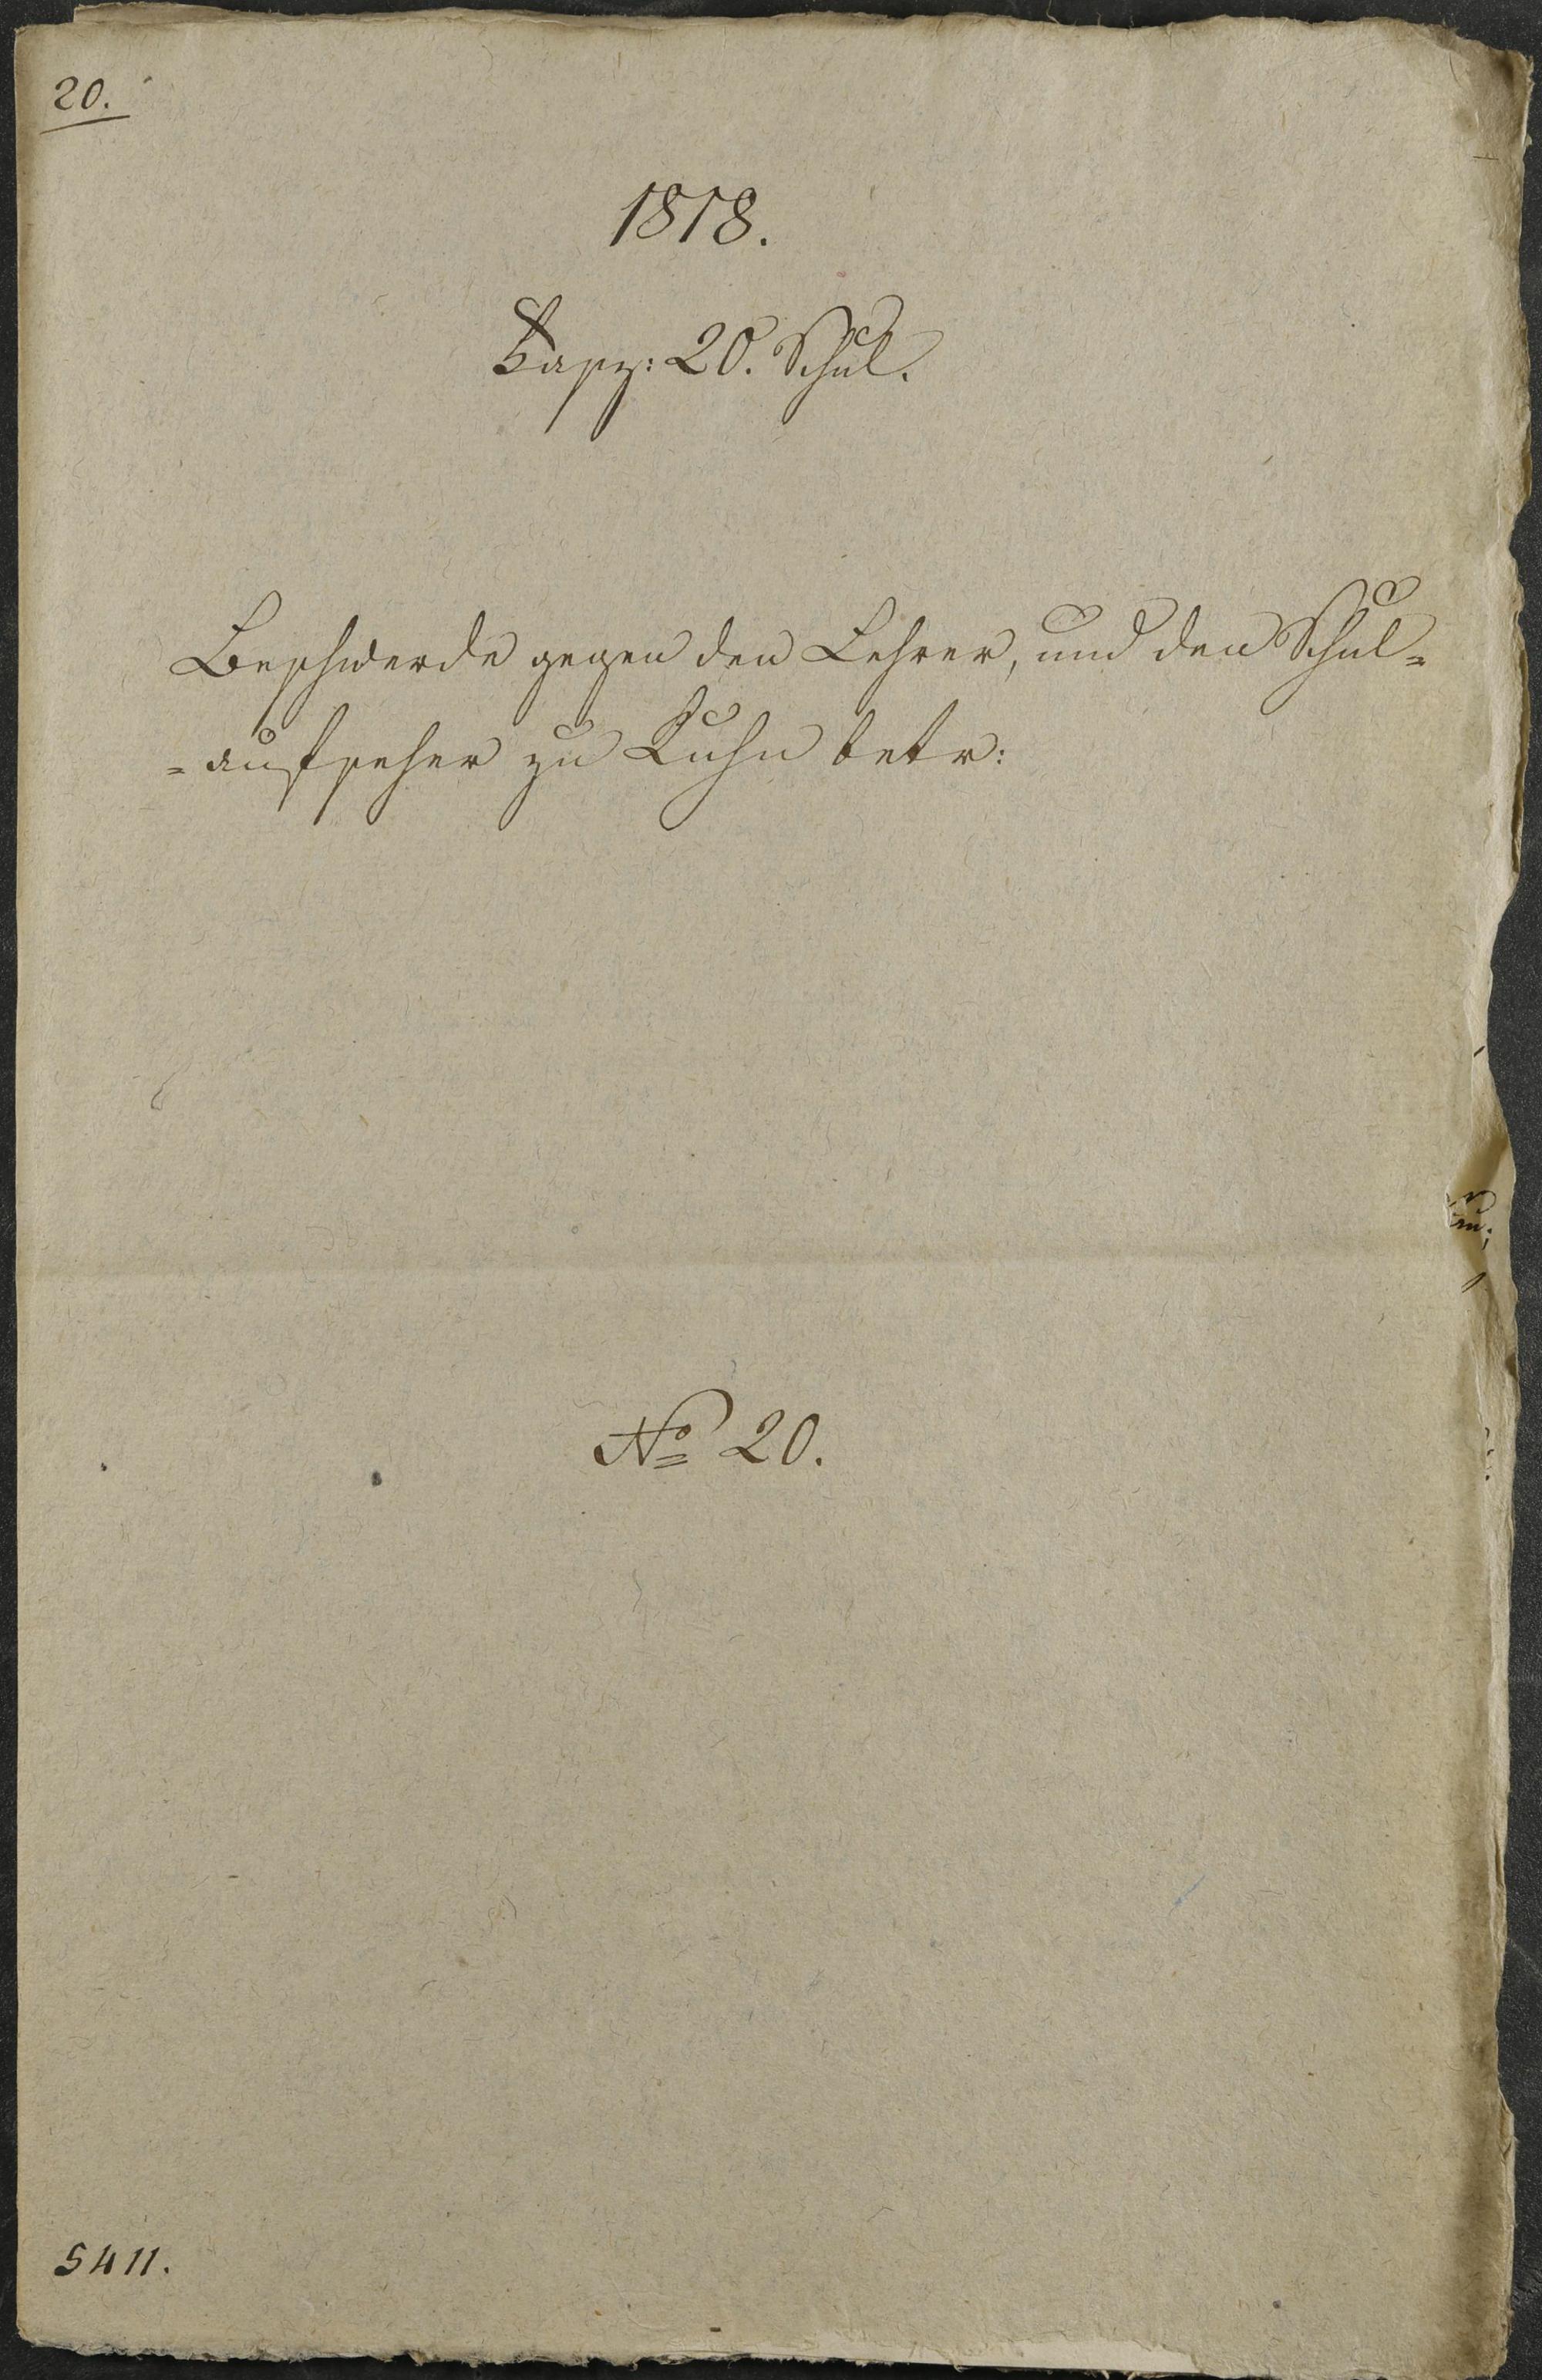 20.
1818.
Fasz: 20. Schul.
Beschwerde gegen den Lehrer, und den Schul=
=aufseher zu Kuhn betr:
№ 20.
5411.